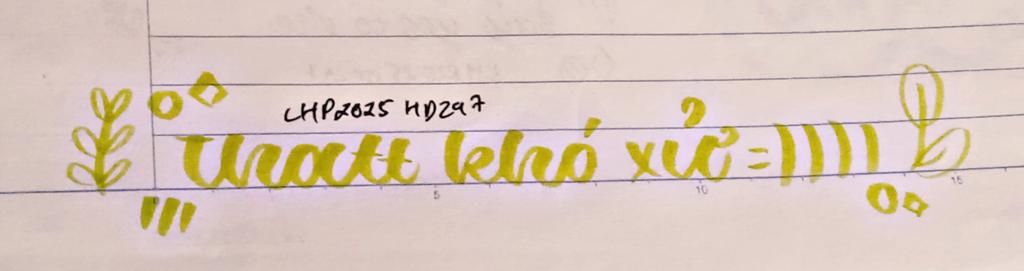 LHP2025 HD297
thatt khó xử =))))
5 10 15